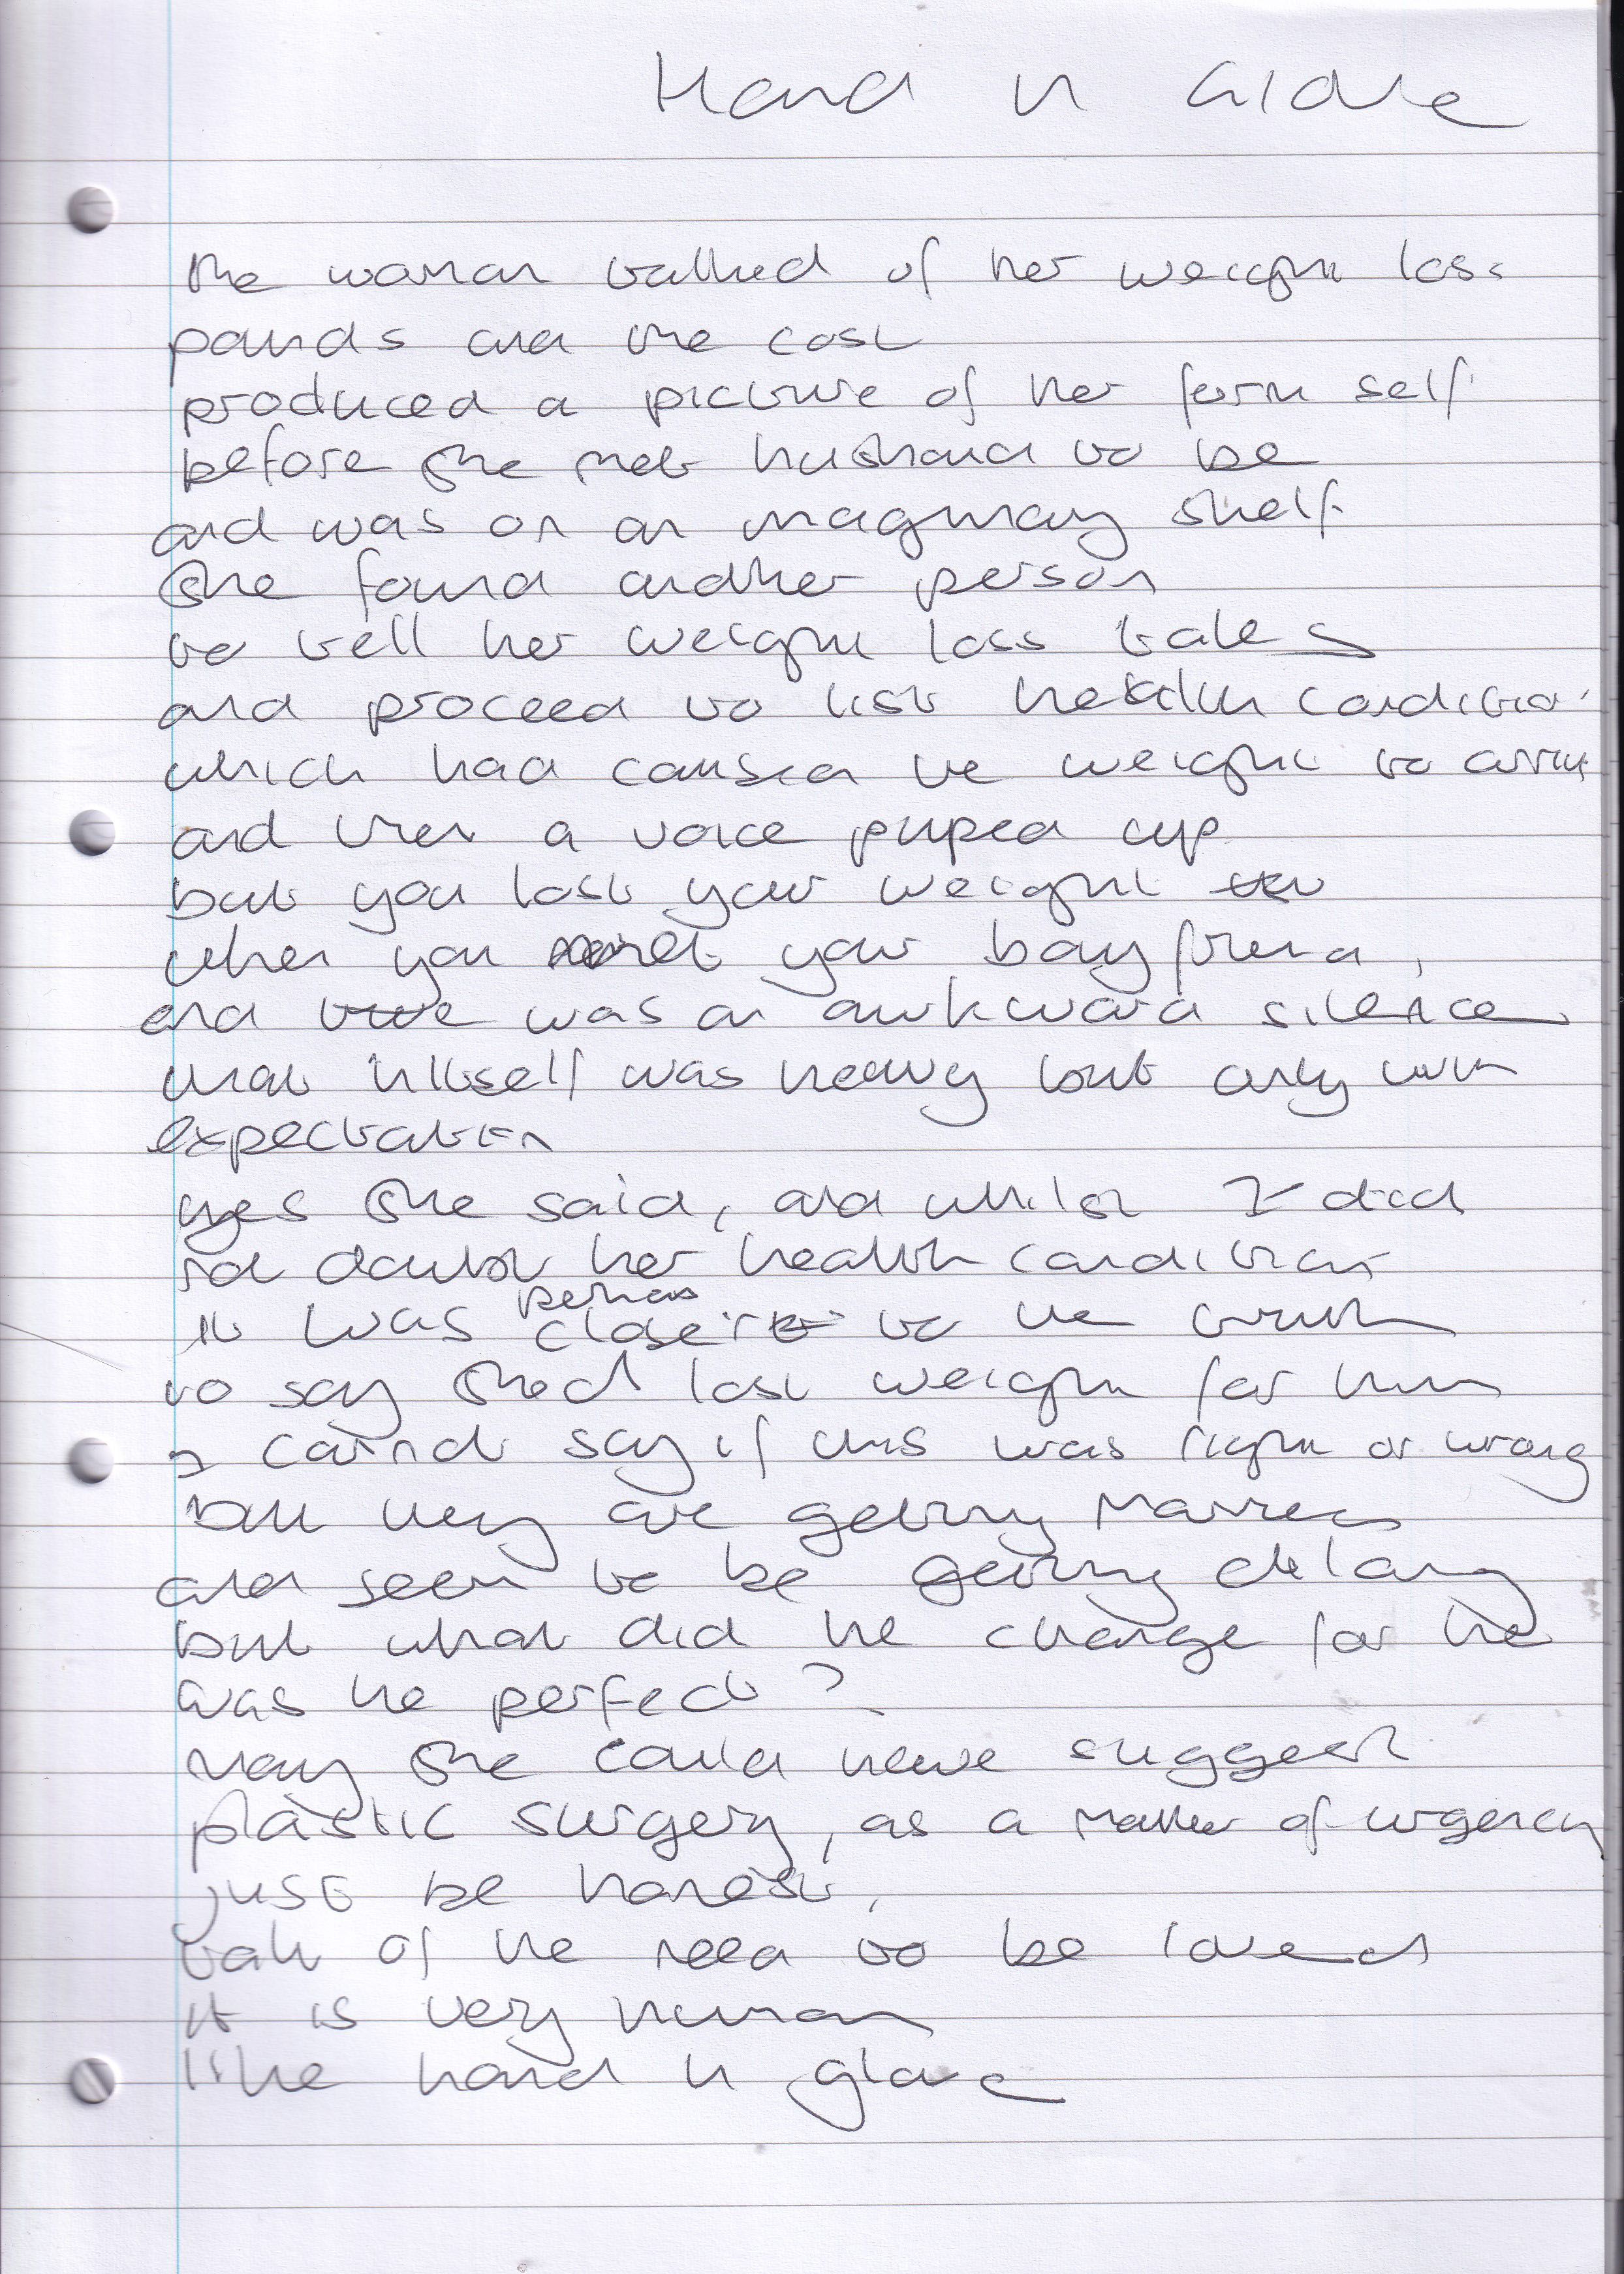 Hand in Glove
the woman talked of her weight loss
pounds and the cost
produced a picture of her form self
before she met husband to be
and was on an imaginary shelf
she found another person
to tell her weight loss tales
and proceed to list health condition
which had caused the weight to arrive
and then a voice piped up
but you lost your weight
when you met your boyfriend,
and there was an awkward silence
that in itself was heavy but only with
expectation
yes she said, and whilst I did
not doubt her health conditions
perhaps
it was closer to the truth
to say she'd lost weight for him
I cannot say if this was right or wrong
but they are getting married
and seem to be getting along
but what did he change for he
was he perfect?
may she could never suggest
plastic surgery, as a matter of urgency
just be honest,
talk of the need to be loved
it is very human
like hand in glove